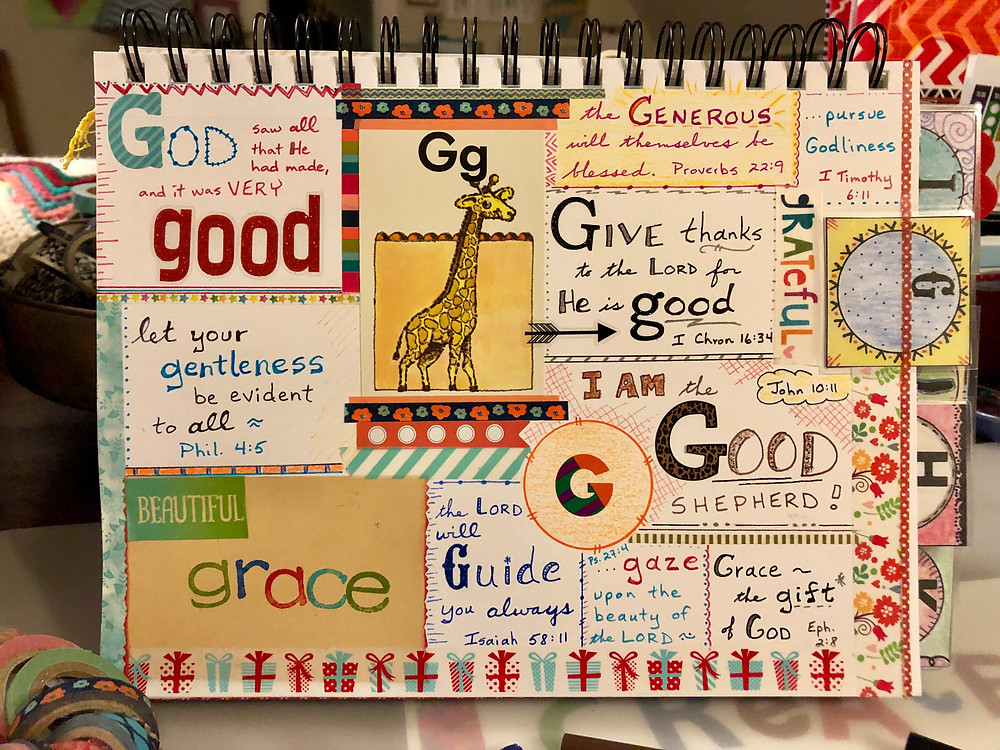 GOD saw all
that He
had made,
and it was VERY
good
let your
gentleness
be evident
to all ~
Phil. 4:5
BEAUTIFUL
grace
Gg
the GENEROUS
will themselves be
blessed. Proverbs 22:9
...pursue
Godliness
I Timothy
6:11
GIVE thanks
to the LORD for
He is good
I Chron 16:34
GRATefuL
I AM the
John 10:11
GOOD
SHEPHERD!
G
the LORD
will
Guide
you always
Isaiah 58:11
Ps. 27:4
...gaze
upon the
beauty of
the LORD ~
Grace ~
the gift*
of GOD Eph.
2:8
I
G
H
K
CREATE